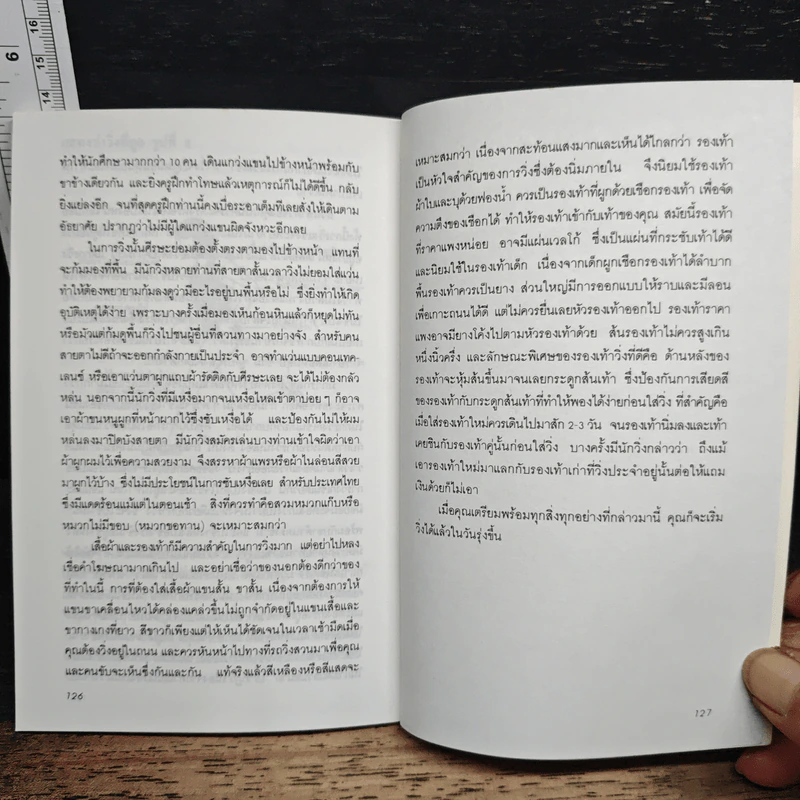 6
14
15
16
ทำให้นักศึกษามากกว่า 10 คน เดินแกว่งแขนไปข้างหน้าพร้อมกับ
ขาข้างเดียวกัน และยิ่งครูฝึกทำโทษแล้วเหตุการณ์ก็ไม่ได้ดีขึ้น กลับ
ยิ่งแย่ลงอีก จนที่สุดครูฝึกท่านนี้คงเบื่อระอาเต็มทีเลยสั่งให้เดินตาม
อัธยาศัย ปรากฏว่าไม่มีผู้ใดแกว่งแขนผิดจังหวะอีกเลย
ในการวิ่งนั้นศีรษะย่อมต้องตั้งตรงตามองไปข้างหน้า แทนที่
จะก้มมองที่พื้น มีนักวิ่งหลายท่านที่สายตาสั้นเวลาวิ่งไม่ยอมใส่แว่น
ทำให้ต้องพยายามก้มลงดูว่ามีอะไรอยู่บนพื้นหรือไม่ ซึ่งยิ่งทำให้เกิด
อุบัติเหตุได้ง่าย เพราะบางครั้งเมื่อมองเห็นก้อนหินแล้วก็หยุดไม่ทัน
หรือมัวแต่ก้มดูพื้นก็วิ่งไปชนผู้อื่นที่สวนทางมาอย่างจัง สำหรับคน
สายตาไม่ดีถ้าจะออกกำลังกายเป็นประจำ อาจทำแว่นแบบคอนเทค-
เลนซ์ หรือเอาแว่นตาผูกแถบผ้ารัดติดกับศีรษะเลย จะได้ไม่ต้องกลัว
หล่น นอกจากนี้นักวิ่งที่มีเหงื่อมากจนเหงื่อไหลเข้าตาบ่อยๆ ก็อาจ
เอาผ้าขนหนูผูกที่หน้าผากไว้ซึ่งซับเหงื่อได้ และป้องกันไม่ให้ผม
หล่นลงมาปิดบังสายตา มีนักวิ่งสมัครเล่นบางท่านเข้าใจผิดว่าเอา
ผ้าผูกผมไว้เพื่อความสวยงาม จึงสรรหาผ้าแพรหรือผ้าไนล่อนสีสวย
มาผูกไว้บ้าง ซึ่งไม่มีประโยชน์ในการซับเหงื่อเลย สำหรับประเทศไทย
ซึ่งมีแดดร้อนแม้แต่ในตอนเช้า สิ่งที่ควรทำคือสวมหมวกแก๊บหรือ
หมวกไม่มีขอบ (หมวกขอทาน) จะเหมาะสมกว่า
เสื้อผ้าและรองเท้าก็มีความสำคัญในการวิ่งมาก แต่อย่าไปหลง
เชื่อคำโฆษณามากเกินไป และอย่าเชื่อว่าของนอกต้องดีกว่าของ
ที่ทำในนี้ การที่ต้องใส่เสื้อผ้าแขนสั้น ขาสั้น เนื่องจากต้องการให้
แขนขาเคลื่อนไหวได้คล่องแคล่วขึ้นไม่ถูกจำกัดอยู่ในแขนเสื้อและ
ขากางเกงที่ยาว สีขาวก็เพียงแต่ให้เห็นได้ชัดเจนในเวลาเช้ามืดเมื่อ
คุณต้องวิ่งอยู่ในถนน และควรหันหน้าไปทางที่รถวิ่งสวนมาเพื่อคุณ
และคนขับจะเห็นซึ่งกันและกัน แท้จริงแล้วสีเหลืองหรือสีแสดจะ
126
เหมาะสมกว่า เนื่องจากสะท้อนแสงมากและเห็นได้ไกลกว่า รองเท้า
เป็นหัวใจสำคัญของการวิ่งซึ่งต้องนิ่มภายใน จึงนิยมใช้รองเท้า
ผ้าใบและบุด้วยฟองน้ำ ควรเป็นรองเท้าที่ผูกด้วยเชือกรองเท้า เพื่อจัด
ความตึงของเชือกได้ ทำให้รองเท้าเข้ากับเท้าของคุณ สมัยนี้รองเท้า
ที่ราคาแพงหน่อย อาจมีแผ่นเวลโก้ ซึ่งเป็นแผ่นที่กระชับเท้าได้ดี
และนิยมใช้ในรองเท้าเด็ก เนื่องจากเด็กผูกเชือกรองเท้าได้ลำบาก
พื้นรองเท้าควรเป็นยาง ส่วนใหญ่มีการออกแบบให้ราบและมีลอน
เพื่อเกาะถนนได้ดี แต่ไม่ควรยื่นเลยหัวรองเท้าออกไป รองเท้าราคา
แพงอาจมียางโค้งไปตามหัวรองเท้าด้วย ส้นรองเท้าไม่ควรสูงเกิน
หนึ่งนิ้วครึ่ง และลักษณะพิเศษของรองเท้าวิ่งที่ดีคือ ด้านหลังของ
รองเท้าจะหุ้มส้นขึ้นมาจนเลยกระดูกส้นเท้า ซึ่งป้องกันการเสียดสี
ของรองเท้ากับกระดูกส้นเท้าที่ทำให้พองได้ง่ายก่อนใส่วิ่ง ที่สำคัญคือ
เมื่อใส่รองเท้าใหม่ควรเดินไปมาสัก 2-3 วัน จนรองเท้านิ่มลงและเท้า
เคยชินกับรองเท้าคู่นั้นก่อนใส่วิ่ง บางครั้งมีนักวิ่งกล่าวว่า ถึงแม้
เอารองเท้าใหม่มาแลกกับรองเท้าเก่าที่วิ่งประจำอยู่นั้นต่อให้แถม
เงินด้วยก็ไม่เอา
เมื่อคุณเตรียมพร้อมทุกสิ่งทุกอย่างที่กล่าวมานี้ คุณก็จะเริ่ม
วิ่งได้แล้วในวันรุ่งขึ้น
127